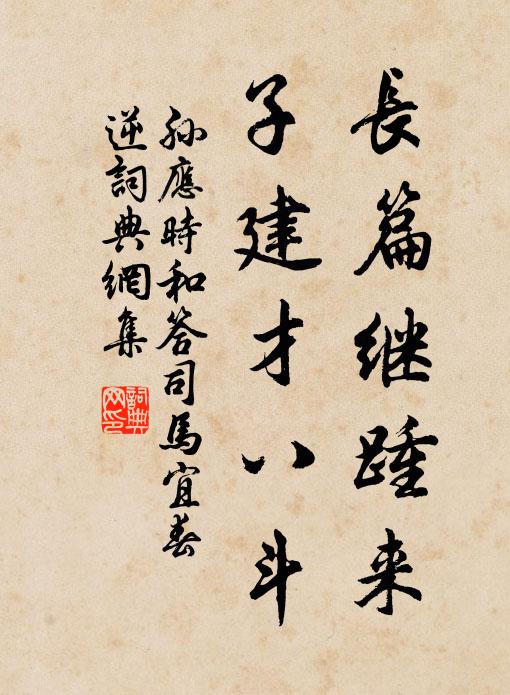 長篇继踵来
子建才八斗
孙應時和答司馬宜春
逆詞典網集
詞典
网印